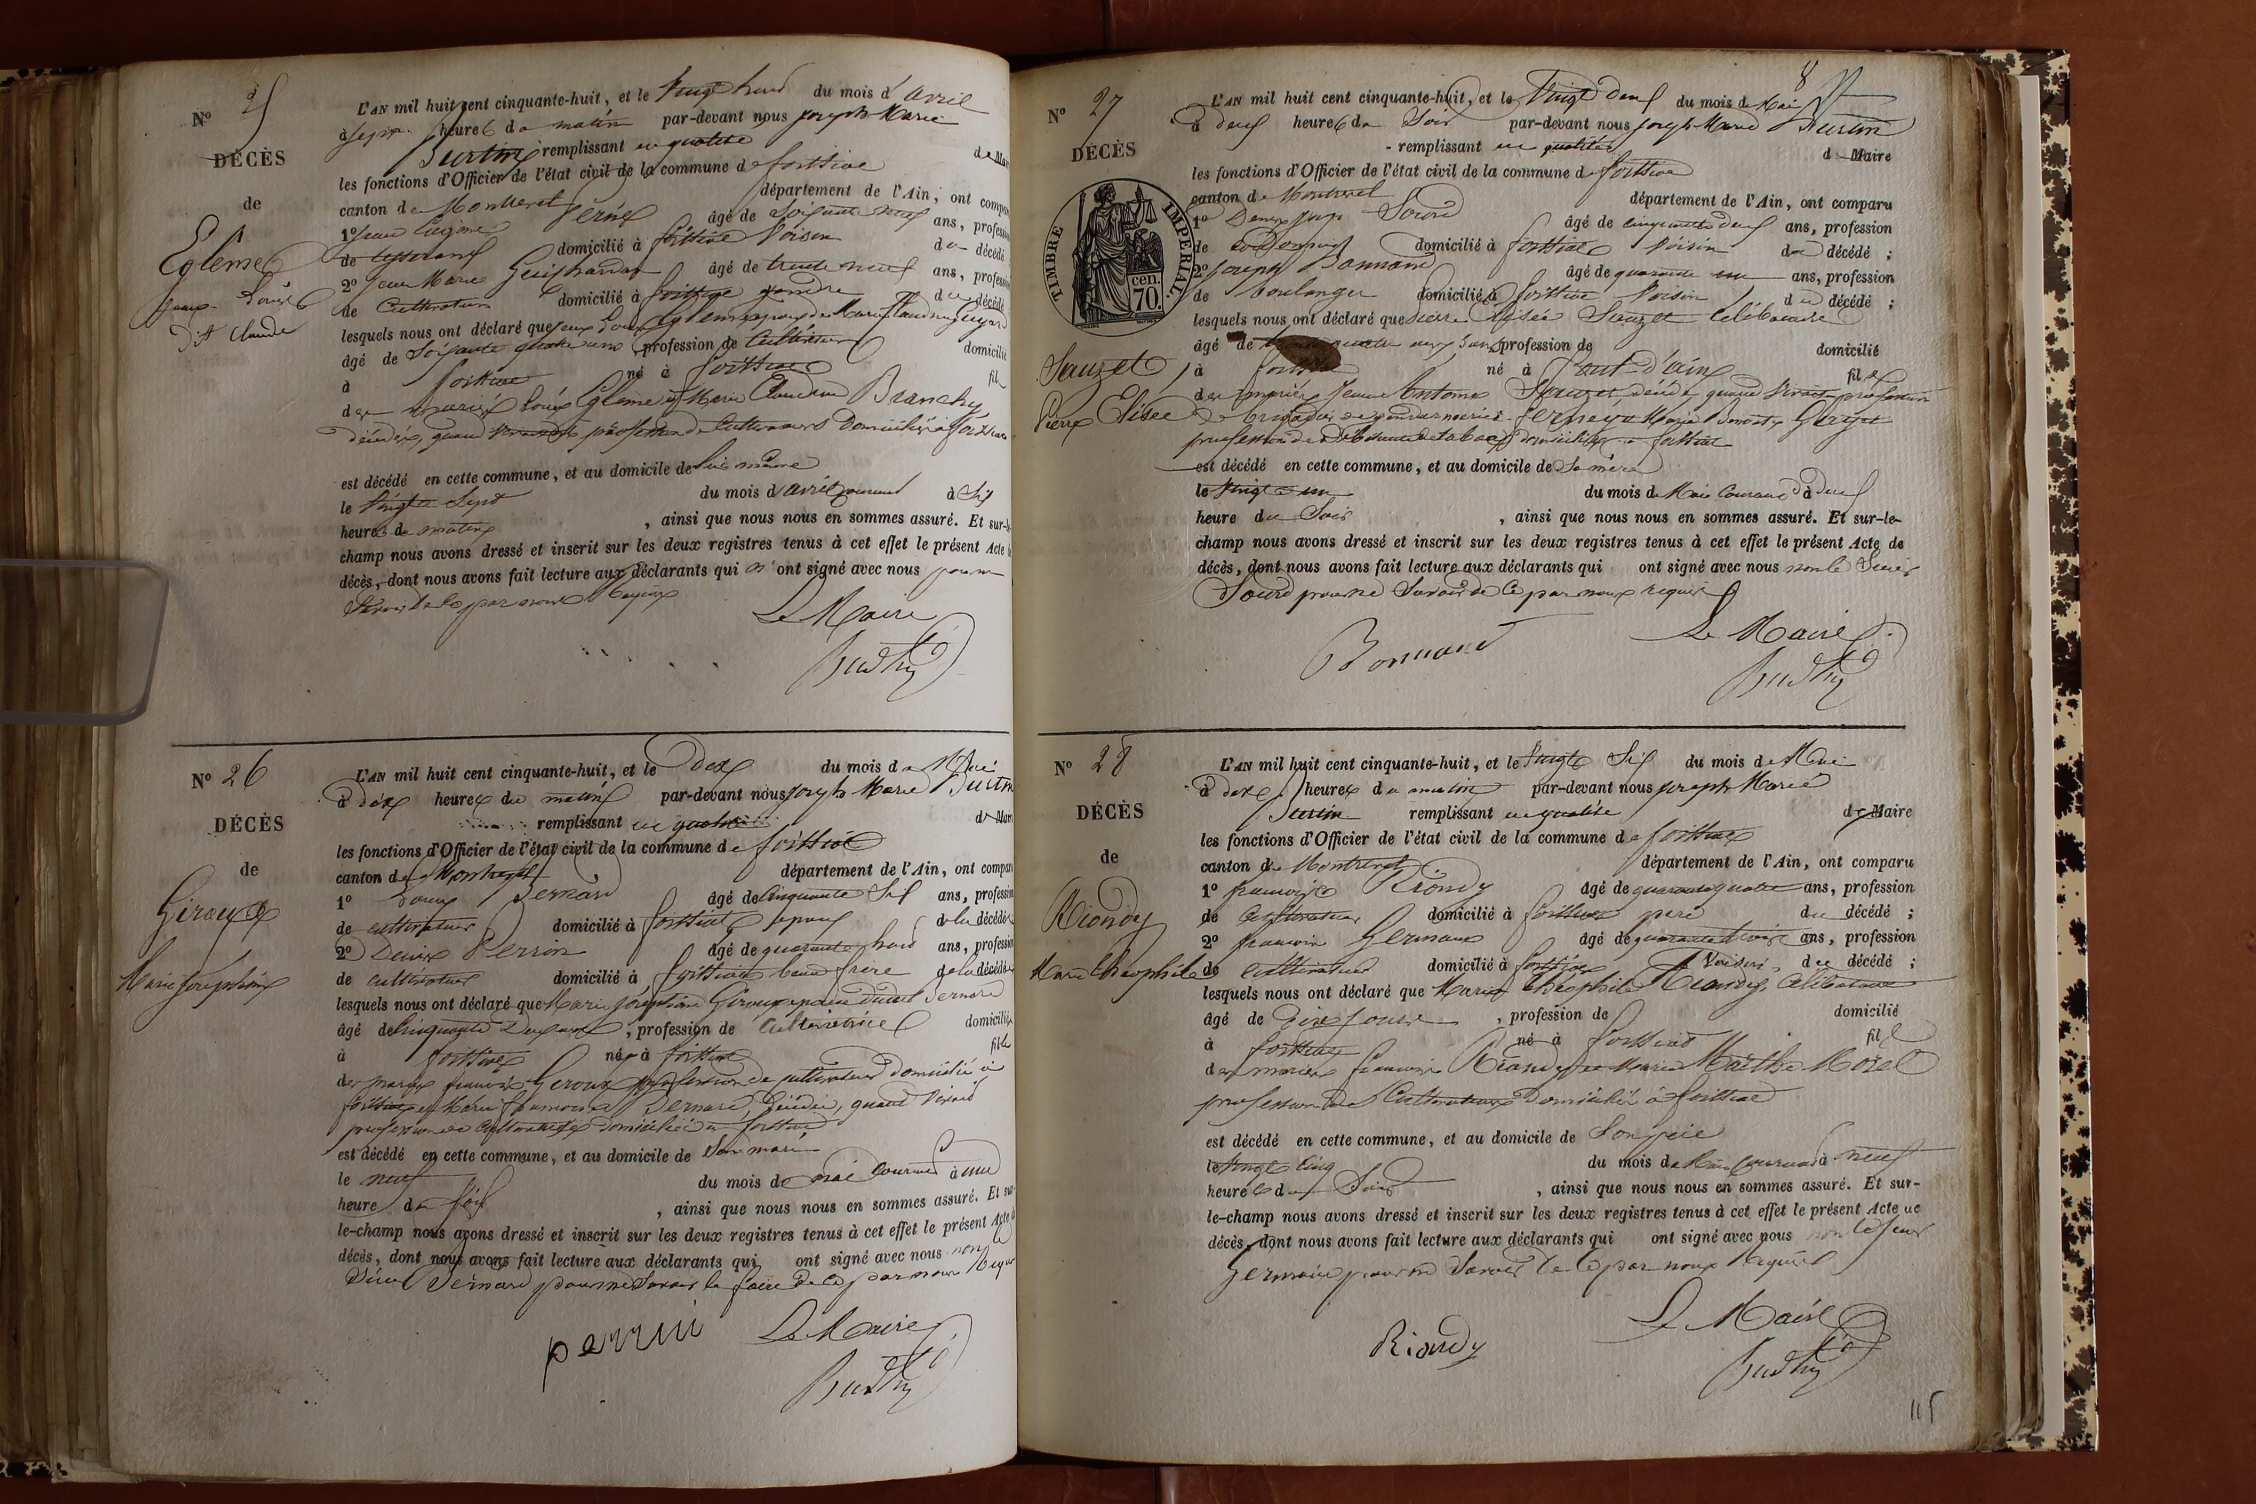 Nº 25
DÉCÈS
de
Egleme
Jean Louis
dit Claude
L'AN mil huit cent cinquante-huit, et le Vingt huit du mois d'avril
à sept heures du matin par-devant nous Joseph Marie
Burtin remplissant en qualité de Maire
les fonctions d'Officier de l'état civil de la commune de foissiat
canton de Montrevel département de l'Ain, ont comparu
1º Jean âgé de Soixante neuf ans, profession
de domicilié à foissiat Voisin du décédé
2º Jean Marie âgé de trente neuf ans, profession
de Cultivateur domicilié à foissiat gendre du décédé
lesquels nous ont déclaré que Jean Louis Egleme epoux de Marie
âgé de Soixante quatre ans, profession de Cultivateur domicilié
à foissiat né à foissiat fils
des mariés Louis Egleme et Marie Claudine Branchy
décédés, quand Vivants profession de Cultivateurs Domiciliés à foissiat
est décédé en cette commune, et au domicile de lui même
le Vingt Sept du mois d'avril courant à Six
heures du matin, ainsi que nous nous en sommes assuré. Et sur-le-
champ nous avons dressé et inscrit sur les deux registres tenus à cet effet le présent Acte de
décès, dont nous avons fait lecture aux déclarants qui n'ont signé avec nous pour ne
Savoir de ce par nous requis
Le Maire
Nº 26
DÉCÈS
de
Giroux
Marie Josephine
L'AN mil huit cent cinquante-huit, et le dix du mois de Mai
à dix heures du matin par-devant nous Joseph Marie Burtin
remplissant en qualité de Maire
les fonctions d'Officier de l'état civil de la commune de foissiat
canton de Montrevel département de l'Ain, ont comparu
1º Bernard âgé de Cinquante Six ans, profession
de cultivateur domicilié à foissiat epoux de la décédée
2º Denis Perrin âgé de quarante huit ans, profession
de cultivateur domicilié à foissiat beau frère de la décédée
lesquels nous ont déclaré que Marie Josephine Giroux epouse Bernard
âgé de Cinquante Deux ans, profession de Cultivatrice domiciliée
à foissiat née à foissiat fille
des mariés françois Giroux profession de cultivateur domicilié à
foissiat et Marie françoise Bernard, Décédée, quand Vivait
profession de Cultivatrice domiciliée à foissiat
est décédé en cette commune, et au domicile de Son mari
le neuf du mois de mai Courant à une
heure du soir, ainsi que nous nous en sommes assuré. Et sur-
le-champ nous avons dressé et inscrit sur les deux registres tenus à cet effet le présent Acte de
décès, dont nous avons fait lecture aux déclarants qui ont signé avec nous non le
Sieur Bernard pour ne Savoir le faire De ce par nous Requis
perrin Le Maire
8
Nº 27
DÉCÈS
TIMBRE IMPÉRIAL.
70 cen.
Sauzet
Pierre Elisée
L'AN mil huit cent cinquante-huit, et le Vingt deux du mois de Mai
à deux heures du Soir par-devant nous Joseph Marie Burtin
remplissant en qualité de Maire
les fonctions d'Officier de l'état civil de la commune de foissiat
canton de Montrevel département de l'Ain, ont comparu
1º Sourd âgé de cinquante deux ans, profession
de domicilié à foissiat Voisin du décédé ;
2º Joseph Bonnard âgé de quarante un ans, profession
de boulanger domicilié à foissiat Voisin du décédé ;
lesquels nous ont déclaré que Pierre Elisée Sauzet Célibataire
âgé de ans, profession de domicilié
à né à Pont-d'ain fils
des mariés Jean Antoine Sauzet, décédé, quand Vivait profession
de brigadier de gendarmerie à et Marie Benoite
profession de Débitante de tabac domiciliée à foissiat
est décédé en cette commune, et au domicile de Sa mère
le Vingt un du mois de Mai Courant à deux
heure du Soir, ainsi que nous nous en sommes assuré. Et sur-le-
champ nous avons dressé et inscrit sur les deux registres tenus à cet effet le présent Acte de
décès, dont nous avons fait lecture aux déclarants qui ont signé avec nous non le Sieur
Sourd pour ne Savoir de Ce par nous requis
Bonnard Le Maire
Nº 28
DÉCÈS
de
Riondy
Marie Théophile
L'AN mil huit cent cinquante-huit, et le Vingt Six du mois de Mai
à dix heures du matin par-devant nous Joseph Marie
Burtin remplissant en qualité de Maire
les fonctions d'Officier de l'état civil de la commune de foissiat
canton de Montrevel département de l'Ain, ont comparu
1º françois Riondy âgé de quarante quatre ans, profession
de Cultivateur domicilié à foissiat père du décédé ;
2º françois Germain âgé de quarante trois ans, profession
de cultivateur domicilié à foissiat Voisin, du décédé ;
lesquels nous ont déclaré que Marie Théophile Riondy, Célibataire
âgé de dix jours, profession de domicilié
à foissiat né à foissiat fils
des mariés françois Riondy et Marie Marthe Morel
profession de Cultivateurs Domiciliés à foissiat
est décédé en cette commune, et au domicile de Son père
le Vingt Cinq du mois de Mai Courant à neuf
heures du Soir, ainsi que nous nous en sommes assuré. Et sur-
le-champ nous avons dressé et inscrit sur les deux registres tenus à cet effet le présent Acte de
décès, dont nous avons fait lecture aux déclarants qui ont signé avec nous non le Sieur
Germain pour ne Savoir de Ce par nous Requis
Riondy Le Maire
115